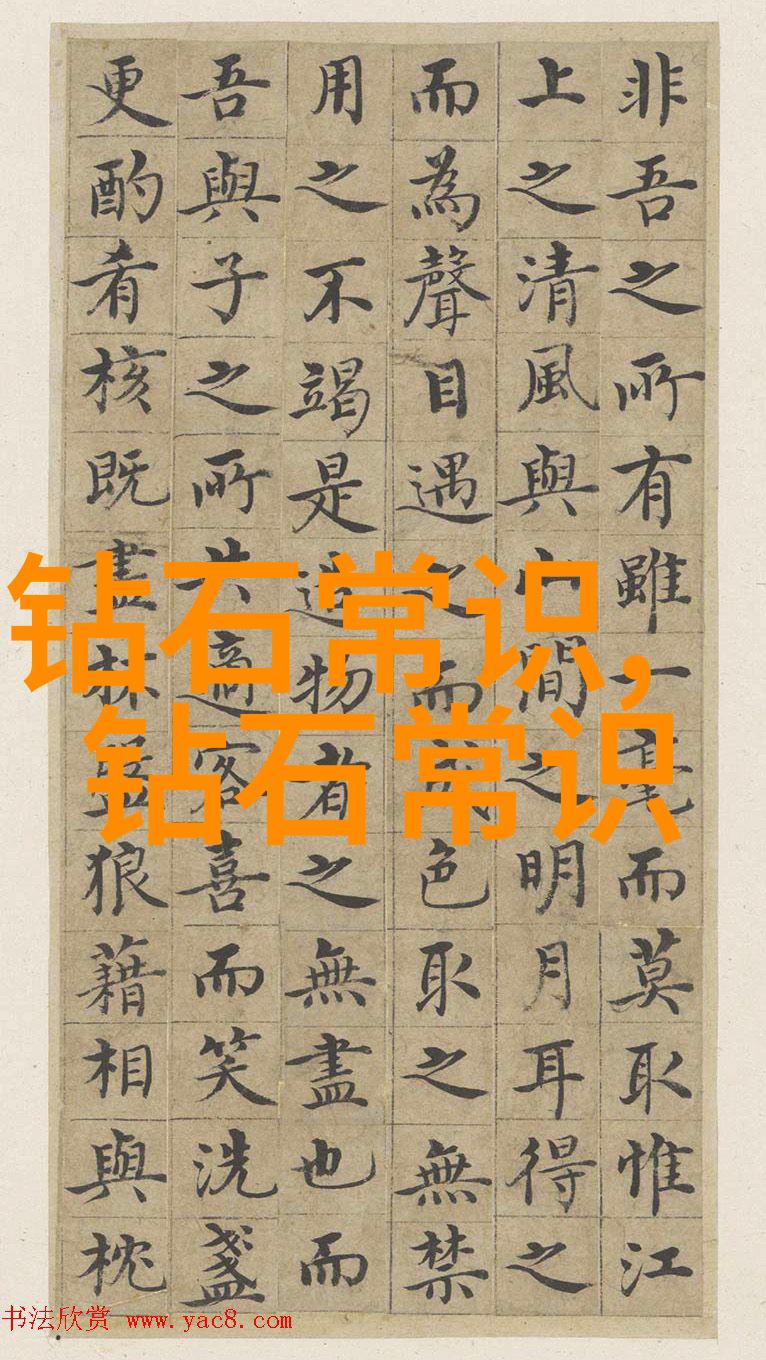 非吾之所有雖一毫而莫取惟江
上之清風與山間之明月耳得之
而為聲目遇之而成色取之無禁
用之不竭是造物者之無盡也而
吾與子之所共適客喜而笑洗盞
更酌肴核既盡杯盤狼藉相與枕
钻石常识,
钻石常识
书法欣赏 www.yac8.com